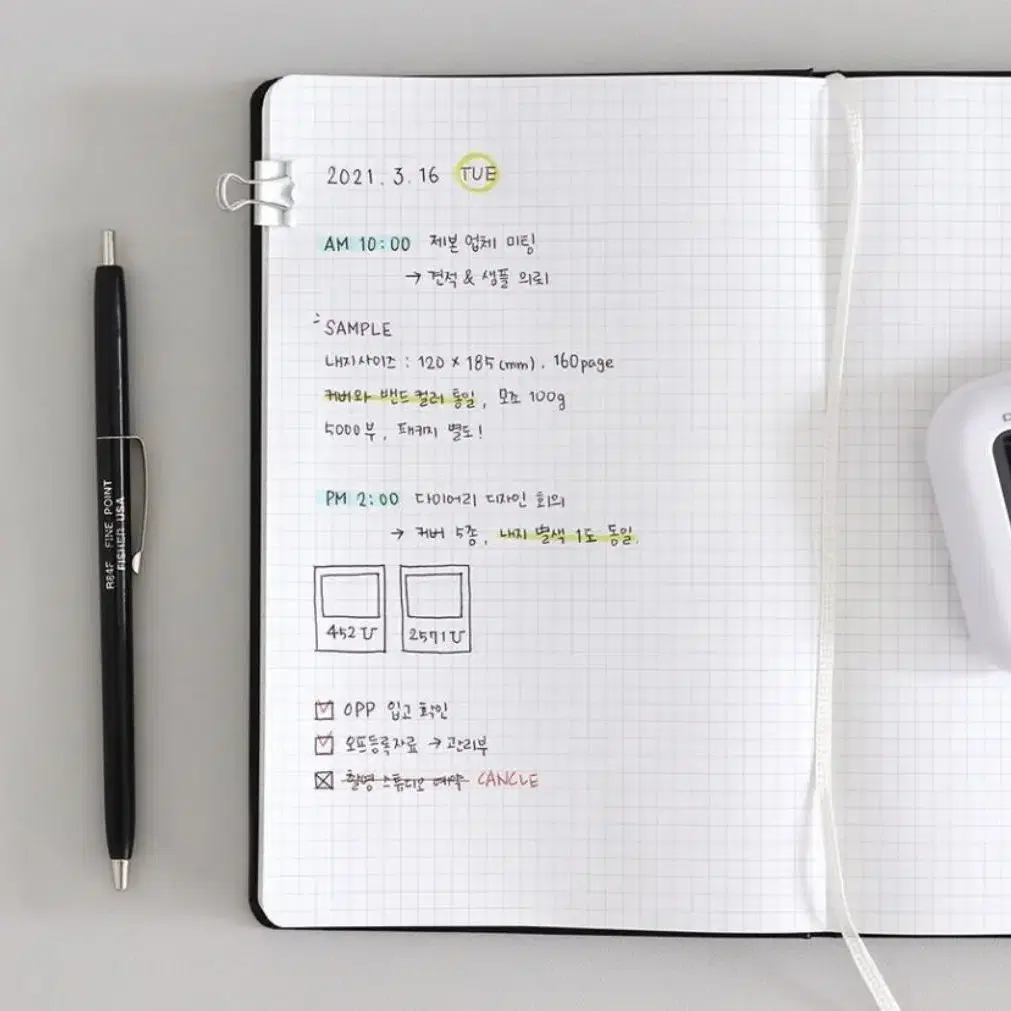 2021. 3. 16 TUE
AM 10:00 제본 업체 미팅
→ 견적 & 샘플 의뢰
SAMPLE
내지사이즈 : 120 × 185 (mm). 160page
커버와 밴드 컬러 통일, 모조 100g
5000부, 패키지 별도!
PM 2:00 다이어리 디자인 회의
→ 커버 5종, 내지 별색 1도 동일.
452 U 2571 U
OPP 입고 확인
오프등록자료 → 관리부
촬영 스튜디오 예약 CANCLE
R84F FINE POINT
FISHER USA